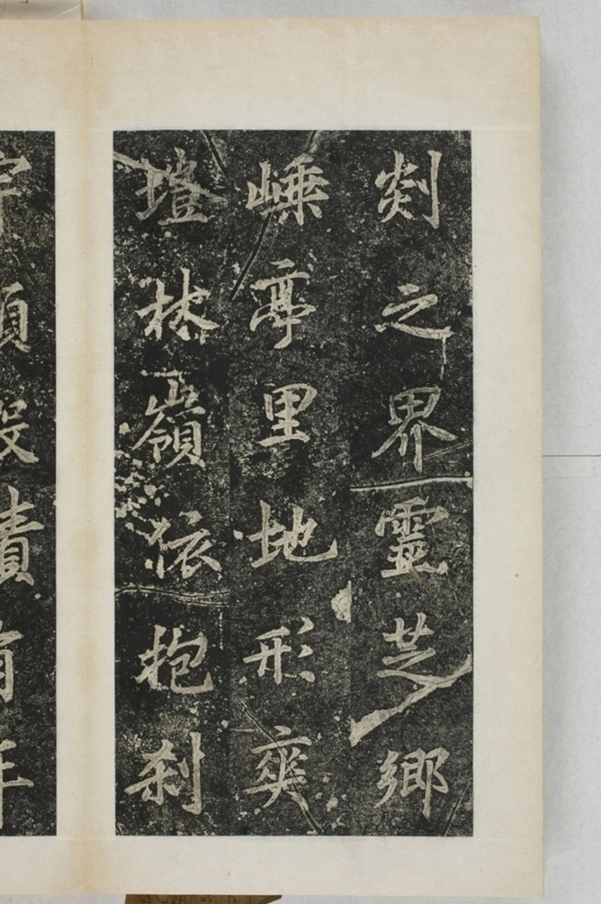 剡之界靈芝鄉
嵊亭里地形爽
塏林嶺依抱刹